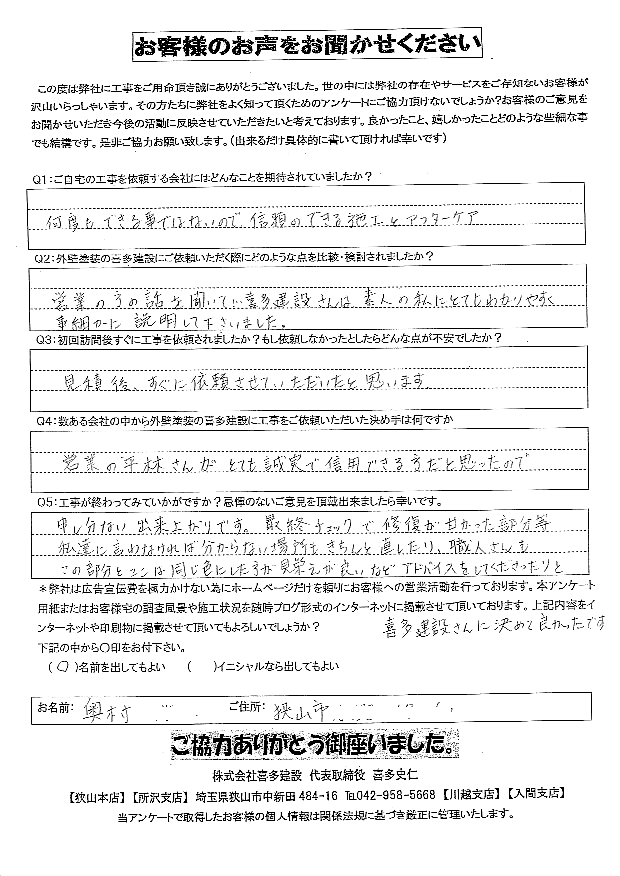 お客様のお声をお聞かせください
この度は弊社に工事をご用命頂き誠にありがとうございました。世の中には弊社の存在やサービスをご存知ないお客様が
沢山いらっしゃいます。その方たちに弊社をよく知って頂くためのアンケートにご協力頂けないでしょうか?お客様のご意見を
お聞かせいただき今後の活動に反映させていただきたいと考えております。良かったこと、嬉しかったことどのような些細な事
でも結構です。是非ご協力お願い致します。(出来るだけ具体的に書いて頂ければ幸いです)
Q1:ご自宅の工事を依頼する会社にはどんなことを期待されていましたか?
何度もできる事ではないので信頼のできる施工とアフターケア
Q2:外壁塗装の喜多建設にご依頼いただく際にどのような点を比較・検討されましたか?
営業の方の話を聞いてい喜多建設さんは素人の私にとてもわかりやすく
事細かに説明して下さいました。
Q3:初回訪問後すぐに工事を依頼されましたか?もし依頼しなかったとしたらどんな点が不安でしたか?
見積後、すぐに依頼させていただいたと思います
Q4:数ある会社の中から外壁塗装の喜多建設に工事をご依頼いただいた決め手は何ですか
営業の平林さんがとても誠実で信用できる方だと思ったので
Q5:工事が終わってみていかがですか?忌憚のないご意見を頂戴出来ましたら幸いです。
申し分ない出来上がりです。最終チェックで修復が甘かった部分等
私達に言わなければ分からない場所もきちんと直したり、職人さんも
この部分とここは同じ色にした方が見栄えが良いなどアドバイスをしてくださったりと
*弊社は広告宣伝費を極力かけない為にホームページだけを頼りにお客様への営業活動を行っております。本アンケート
用紙またはお客様宅の調査風景や施工状況を随時ブログ形式のインターネットに掲載させて頂いております。上記内容をイ
ンターネットや印刷物に掲載させて頂いてもよろしいでしょうか?
喜多建設さんに決めて良かったです
下記の中から○印をお付下さい。
(○)名前を出してもよい ( )イニシャルなら出してもよい
お名前: 奥村 ご住所: 狭山市
ご協力ありがとう御座いました。
株式会社喜多建設 代表取締役 喜多史仁
【狭山本店】【所沢支店】 埼玉県狭山市中新田484-16 ℡042-958-5668 【川越支店】【入間支店】
当アンケートで取得したお客様の個人情報は関係法規に基づき厳正に管理いたします。